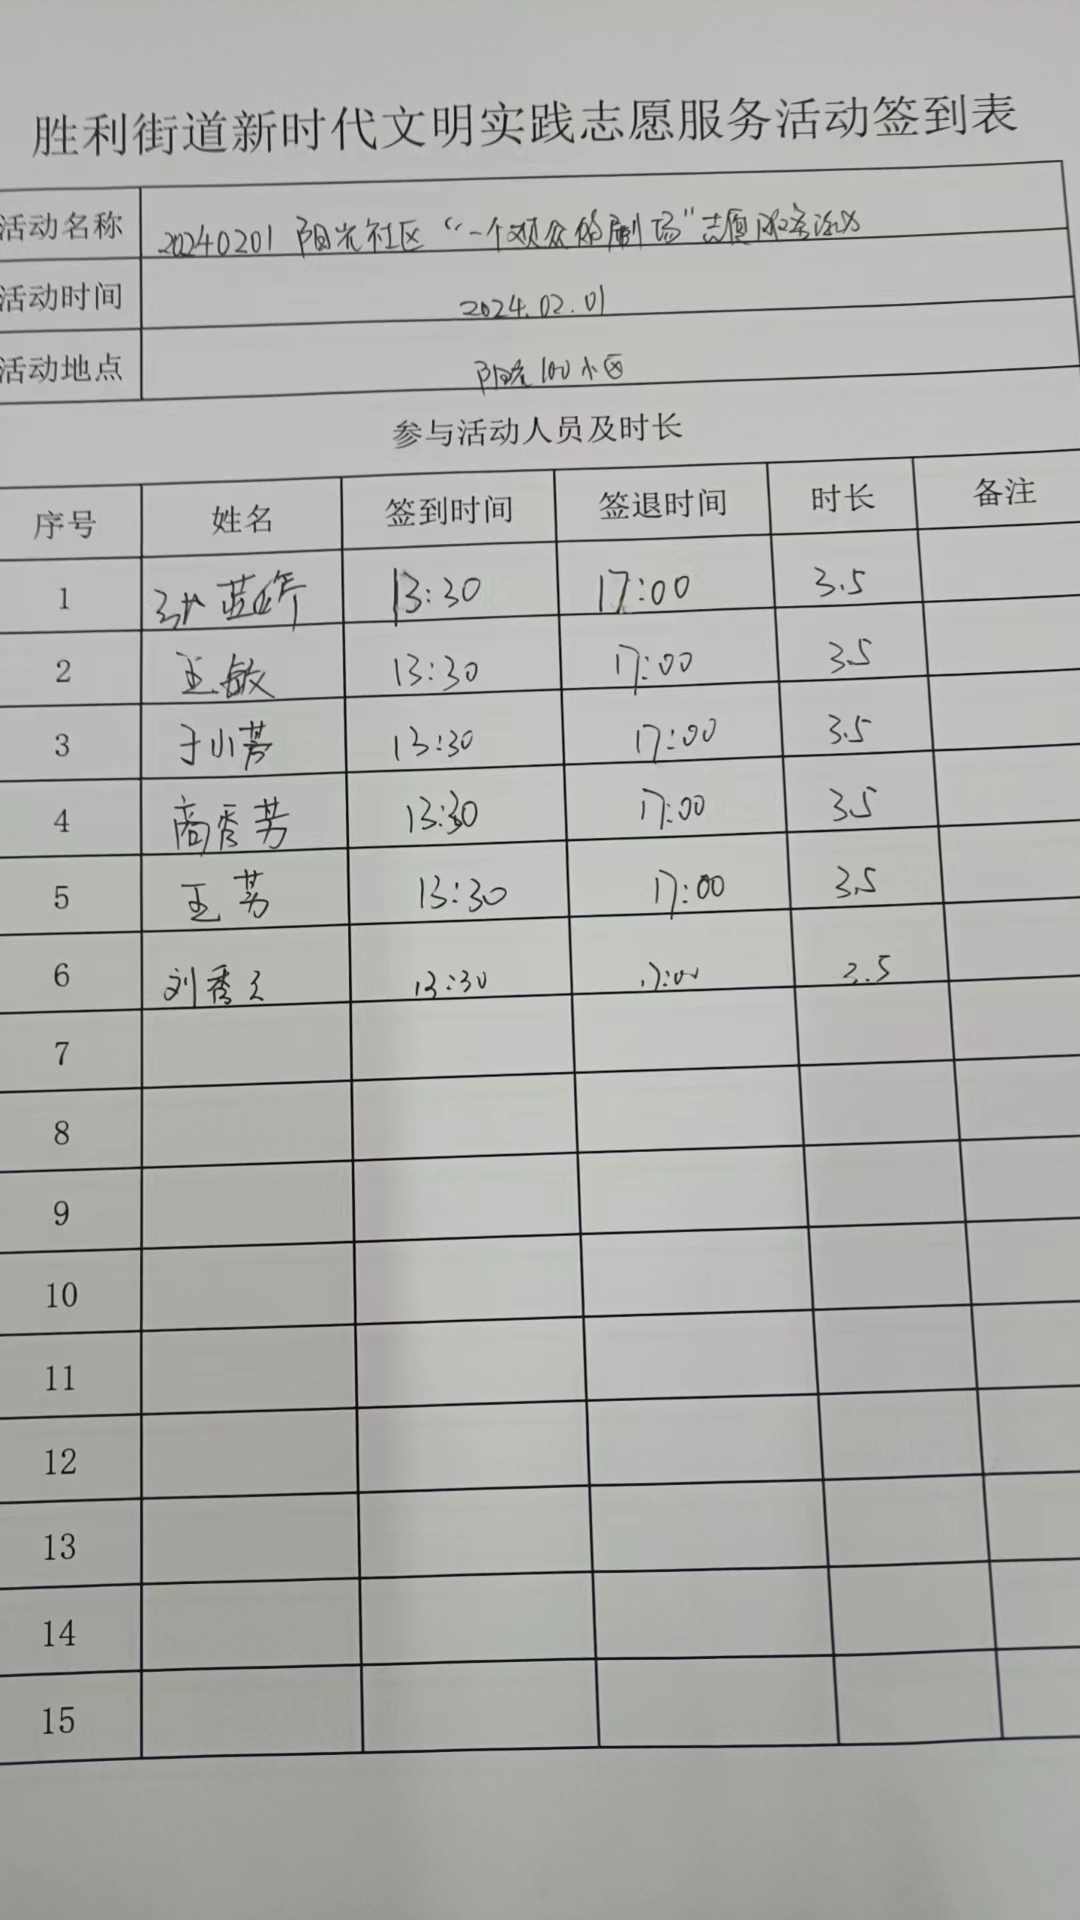 胜利街道新时代文明实践志愿服务活动签到表
活动名称 20240201 阳光社区“一个观众的剧场”志愿服务活动
活动时间 2024.02.01
活动地点 阳光100小区
参与活动人员及时长
序号 姓名 签到时间 签退时间 时长 备注
1 13:30 17:00 3.5
2 王敏 13:30 17:00 3.5
3 于小芳 13:30 17:00 3.5
4 商秀芳 13:30 17:00 3.5
5 王芳 13:30 17:00 3.5
6 刘秀 13:30 17:00 3.5
7
8
9
10
11
12
13
14
15